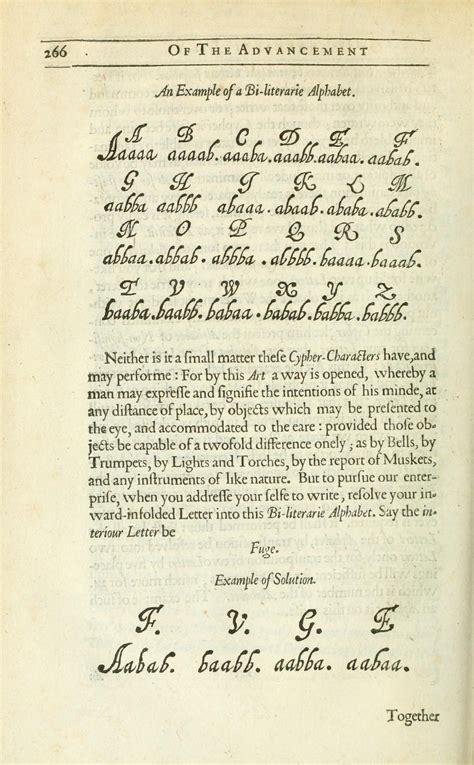 266 OF THE ADVANCEMENT
An Example of a Bi-literarie Alphabet.
A B C D E F
Aaaaa aaaab. aaaba. aaabb. aabaa. aabab.
G H I K L M
aabba aabbb abaaa. abaab. ababa. ababb.
N O P Q R S
abbaa. abbab. abbba. abbbb. baaaa. baaab.
T V W X Y Z
baaba. baabb. babaa. babab. babba. babbb.
Neither is it a ſmall matter theſe Cypher-Characters have, and
may performe: For by this Art a way is opened, whereby a
man may expreſſe and ſignifie the intentions of his minde, at
any diſtance of place, by objects which may be preſented to
the eye, and accommodated to the eare: provided thoſe ob-
jects be capable of a twofold difference onely; as by Bells, by
Trumpets, by Lights and Torches, by the report of Muskets,
and any inſtruments of like nature. But to purſue our enter-
priſe, when you addreſſe your ſelfe to write, reſolve your in-
ward-infolded Letter into this Bi-literarie Alphabet. Say the in-
teriour Letter be
Fuge.
Example of Solution.
F. V. G. E
Aabab. baabb. aabba. aabaa.
Together